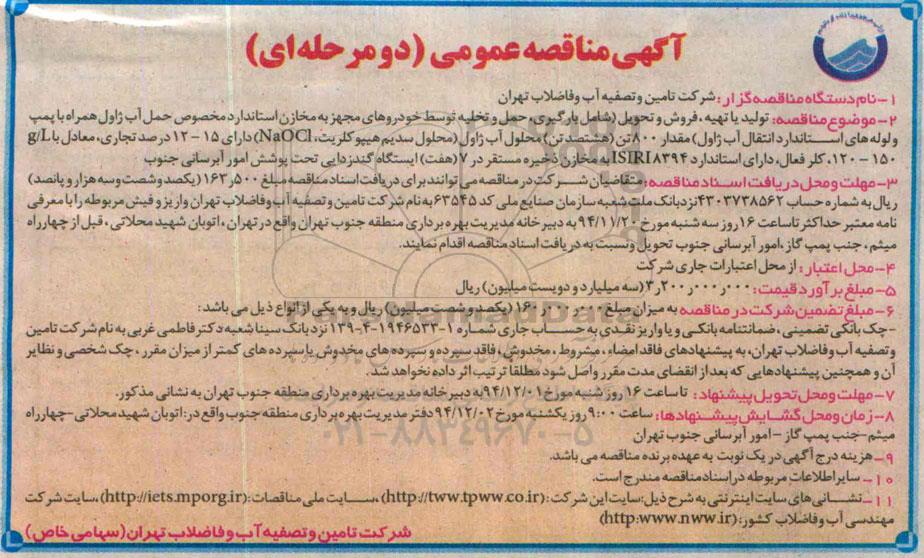 آگهی مناقصه عمومی (دو مرحله ای)
۱-نام دستگاه مناقصه گزار: شرکت تامین و تصفیه آب و فاضلاب تهران
۲-موضوع مناقصه: تولید یا تهیه، فروش و تحویل (شامل بارگیری، حمل و تخلیه توسط خودروهای مجهز به مخازن استاندارد مخصوص حمل آب ژاول همراه با پمپ
و لوله های استاندارد انتقال آب ژاول) مقدار ۸۰۰ تن (هشتصد تن) محلول آب ژاول (محلول سدیم هیپو کلریت، NaOCl) دارای ۱۵-۱۲ درصد تجاری، معادل با g/L
۱۵۰-۱۲۰، کلر فعال، دارای استاندارد ISIRI ۸۳۹۴ به مخازن ذخیره مستقر در ۷ (هفت) ایستگاه گندزدایی تحت پوشش امور آبرسانی جنوب
۳-مهلت و محل دریافت اسناد مناقصه: متقاضیان شرکت در مناقصه می توانند برای دریافت اسناد مناقصه مبلغ ۱۶۳٫۵۰۰ (یکصد و شصت و سه هزار و پانصد)
ریال به شماره حساب ۴۳۰۳۷۳۸۵۶۲ نزد بانک ملت شعبه سازمان صنایع ملی کد ۶۳۵۴۵ به نام شرکت تامین و تصفیه آب و فاضلاب تهران واریز و فیش مربوطه را با معرفی
نامه معتبر حداکثر تا ساعت ۱۶ روز سه شنبه مورخ ۹۴/۱۱/۲۰ به دبیرخانه مدیریت بهره برداری منطقه جنوب تهران واقع در تهران، اتوبان شهید محلاتی، قبل از چهارراه
میثم، جنب پمپ گاز، امور آبرسانی جنوب تحویل و نسبت به دریافت اسناد مناقصه اقدام نمایند.
۴-محل اعتبار: از محل اعتبارات جاری شرکت
۵-مبلغ برآورد قیمت: ۳٫۲۰۰٫۰۰۰٫۰۰۰ (سه میلیارد و دویست میلیون) ریال
۶-مبلغ تضمین شرکت در مناقصه به میزان مبلغ ۱۶۰٫۰۰۰٫۰۰۰ (یکصد و شصت میلیون) ریال و به یکی از انواع ذیل می باشد:
-چک بانکی تضمینی، ضمانتنامه بانکی و یا واریز نقدی به حساب جاری شماره ۱-۱۹۴۶۵۳۳-۴-۱۳۹ نزد بانک سینا شعبه دکتر فاطمی غربی به نام شرکت تامین
و تصفیه آب و فاضلاب تهران، به پیشنهادهای فاقد امضاء، مشروط، مخدوش، فاقد سپرده و سپرده های مخدوش یا سپرده های کمتر از میزان مقرر، چک شخصی و نظایر
آن و همچنین پیشنهادهایی که بعد از انقضای مدت مقرر واصل شود مطلقا ترتیب اثر داده نخواهد شد.
۷-مهلت و محل تحویل پیشنهاد: تا ساعت ۱۶ روز شنبه مورخ ۹۴/۱۲/۰۱ به دبیرخانه مدیریت بهره برداری منطقه جنوب تهران به نشانی مذکور.
۸-زمان و محل گشایش پیشنهادها: ساعت ۹:۰۰ روز یکشنبه مورخ ۹۴/۱۲/۰۲ دفتر مدیریت بهره برداری منطقه جنوب واقع در: اتوبان شهید محلاتی-چهارراه
میثم-جنب پمپ گاز-امور آبرسانی جنوب تهران
۹-هزینه درج آگهی در یک نوبت به عهده برنده مناقصه می باشد.
۱۰-سایر اطلاعات مربوطه در اسناد مناقصه مندرج است.
۱۱-نشانی های سایت اینترنتی به شرح ذیل: سایت این شرکت: (http://tww.tpww.co.ir)، سایت ملی مناقصات: (http://iets.mporg.ir)، سایت شرکت
مهندسی آب و فاضلاب کشور: (http:www.nww.ir)
شرکت تامین و تصفیه آب و فاضلاب تهران (سهامی خاص)
۰۲۱-۸۸۳۴۹۶۷۰-۵